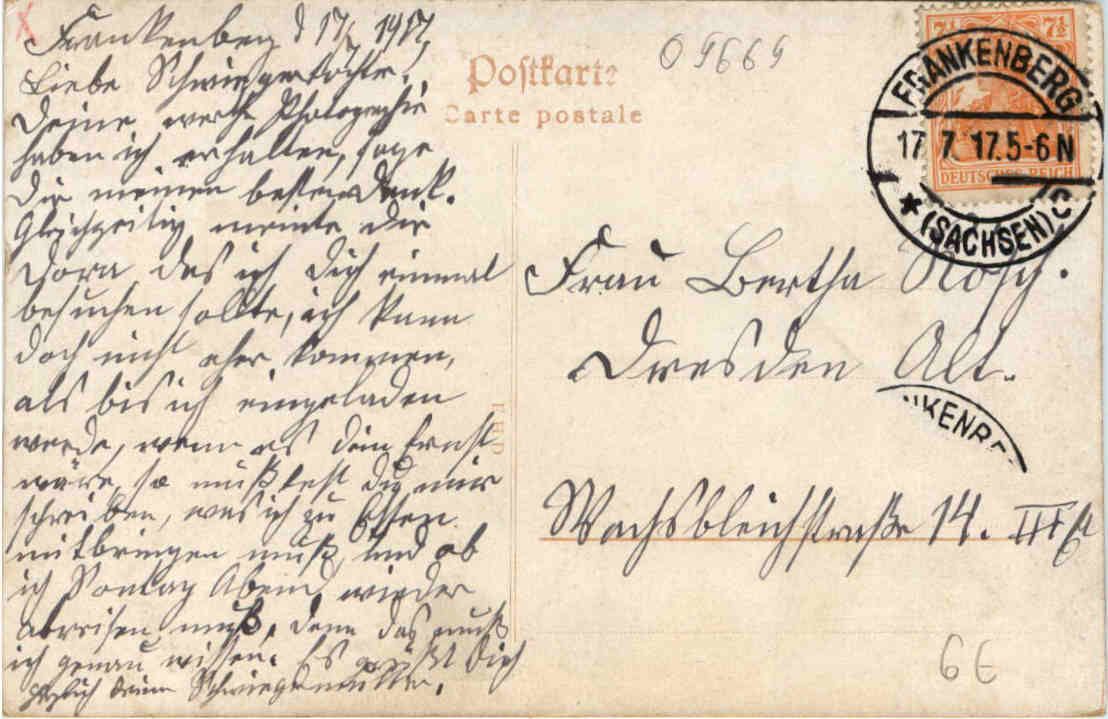 Frankenberg d 17/7 1917
Liebe Schwiegertochter!
Deine werthe Photographie
haben ich erhalten, sage
Dir meinen besten Dank.
Gleichzeitig meinte die
Dora das ich Dich einmal
besuchen sollte, ich kann
doch nicht eher kommen,
als bis ich eingeladen
werde, wenn es Dein Ernst
wäre, so müßtest Du mir
schreiben, was ich zu Essen
mitbringen muß, und ob
ich Sontag Abend wieder
abreisen muß, denn das muß
ich genau wissen. Es grüßt Dich
herzlich Deine Schwiegermutter.
Postkarte
Carte postale
09669
7½ 7½
DEUTSCHES REICH
FRANKENBERG
17. 7. 17. 5-6 N
* (SACHSEN) C
Frau Bertha
Dresden Alt.
NKENBE
Wachsbleichstraße 14. III
6E